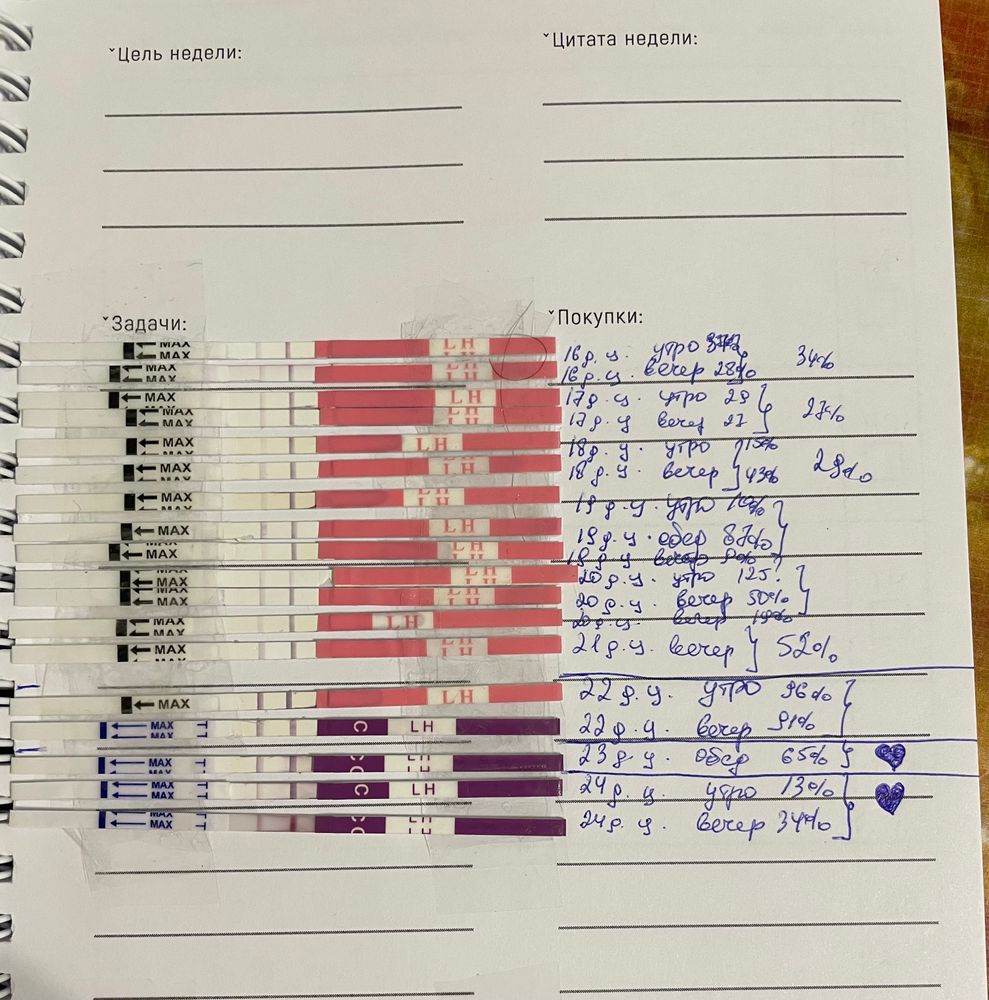 ˇЦель недели:
ˇЦитата недели:
ˇЗадачи:
ˇПокупки:
MAX LH
MAX LH 16 д.ц. утро 34%
MAX 16 д.ц. вечер 28%
MAX LH 17 д.ц. утро 29
MAX LH 17 д.ц вечер 27 27%
MAX LH 18 д.ц. утро 15%
MAX LH 18 д.ц. вечер 43% 29%
MAX LH 19 д.ц. утро
MAX 19 д.ц. обед 87%
MAX LH 19 д.ц. вечер
MAX LH 20 д.ц. утро 125?
MAX LH 20 д.ц. вечер 50%
MAX LH вечер
MAX LH 21 д.ц. вечер 52%
MAX LH 22 д.ц. утро 96%
MAX T C LH 22 д.ц. вечер 91%
MAX T C LH 23 д.ц. обед 65%
MAX T C LH 24 д.ц. утро 13%
MAX T C LH 24 д.ц. вечер 34%